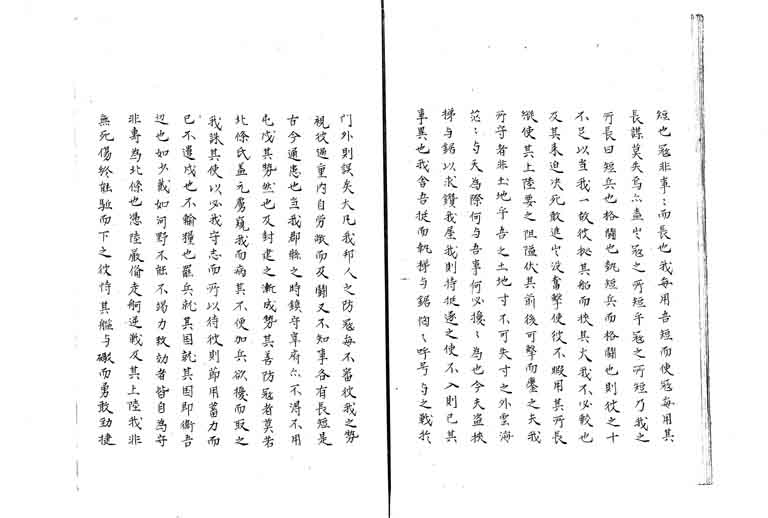 短也冦非事〻而長也我每用吾短而使冦每用其
長謀莫失焉六盍岂冦之所短乎冦之所短乃我之
所長曰短兵也格闘也執短兵而格闘也則彼之十
不足以当我一故彼拠其船而挾其大我不必較也
及其来迫决死敢進岂没奮擊使彼不暇用其所長
縦使其上陸要之阻隘伏其前後可擊而鏖之夫我
所守者非土地乎吾之土地寸不可失寸之外雲海
茫〻与天為際何与吾事何必擾〻為也今夫盗挾
梯与鋸以求鑽我屋我則持挺逐之使不入則已其
事異也我舎吾挺而執梯与鋸恟〻呼号与之戰於
門外則誤矣大凡我邦人之防冦每不審彼我之勢
視彼過重内自労哦而及闘又不知事各有長短是
古今通患也当我郡縣之時鎮守宰府六不得不用
屯戍其勢然也及封建之漸成勢其善防冦者莫若
北條氏盖元虜窺我而病其不便加兵欲擾而取之
我誅其使以必我守志而所以待彼則節用蓄力而
已不遣戍也不輸糧也罷兵就其国就其国即衛吾
辺也如少貳如河野不能不竭力效劾者皆自為守
非專為北條也憑陸嚴備走舸逆戰及其上陸我非
無死傷終能駈而下之彼恃其艦与礮而勇敢勁捷